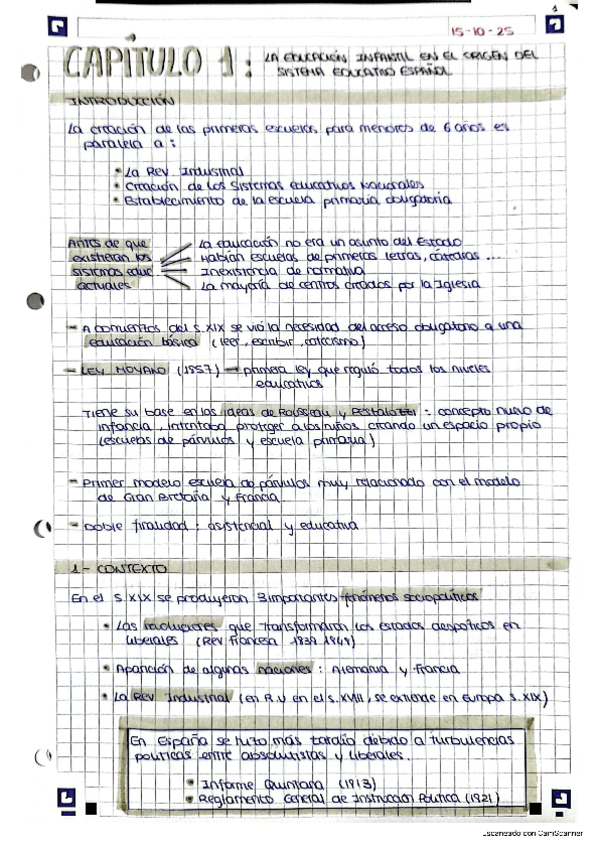 1
15-10-25
CAPÍTULO 1: LA EDUCACIÓN INFANTIL EN EL ORIGEN DEL
SISTEMA EDUCATIVO ESPAÑOL
INTRODUCCIÓN
La creación de las primeras escuelas para menores de 6 años es
paralela a:
• La Rev. Industrial
• Creación de los Sistemas educativos Nacionales
• Establecimiento de la escuela primaria obligatoria
Antes de que
existieran los
sistemas educ.
actuales
La educación no era un asunto del Estado
Habían escuelas de primeras letras, cátedras ...
Inexistencia de normativa
La mayoría de centros creados por la Iglesia
- A comienzos del s.XIX se vio la necesidad del acceso obligatorio a una
educación básica (leer, escribir, catecismo)
- LEY MOYANO (1557) → primera ley que reguló todos los niveles
educativos
Tiene su base en las ideas de Rousseau y Pestalozzi: concepto nuevo de
infancia, intentaba proteger a los niños creando un espacio propio
(escuelas de párvulos y escuela primaria)
- Primer modelo escuela de párvulos muy relacionado con el modelo
de Gran Bretaña y Francia.
- Doble finalidad: asistencial y educativa
1- CONTEXTO
En el s.XIX se produjeron 3 importantes fenómenos sociopolíticos
• Las revoluciones que transformaron los estados despóticos en
liberales (Rev Francesa 1839 1949)
• Aparición de algunas naciones: Alemania y Francia
• La Rev Industrial (en R.U en el s.XVIII, se extiende en Europa s.XIX)
En España se tuvo más tardío debido a turbulencias
políticas entre absolutistas y liberales.
• Informe Quintana (1913)
• Reglamento General de Instrucción Política (1921)
Escaneado con CamScanner